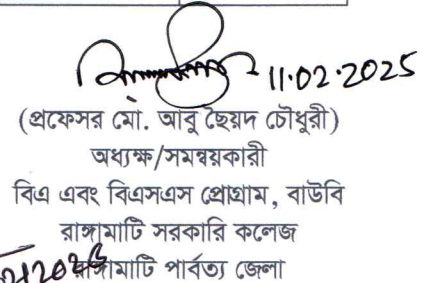 11.02.2025
(প্রফেসর মো. আবু ছৈয়দ চৌধুরী)
অধ্যক্ষ/সমন্বয়কারী
বিএ এবং বিএসএস প্রোগ্রাম, বাউবি
রাঙ্গামাটি সরকারি কলেজ
রাঙ্গামাটি পার্বত্য জেলা